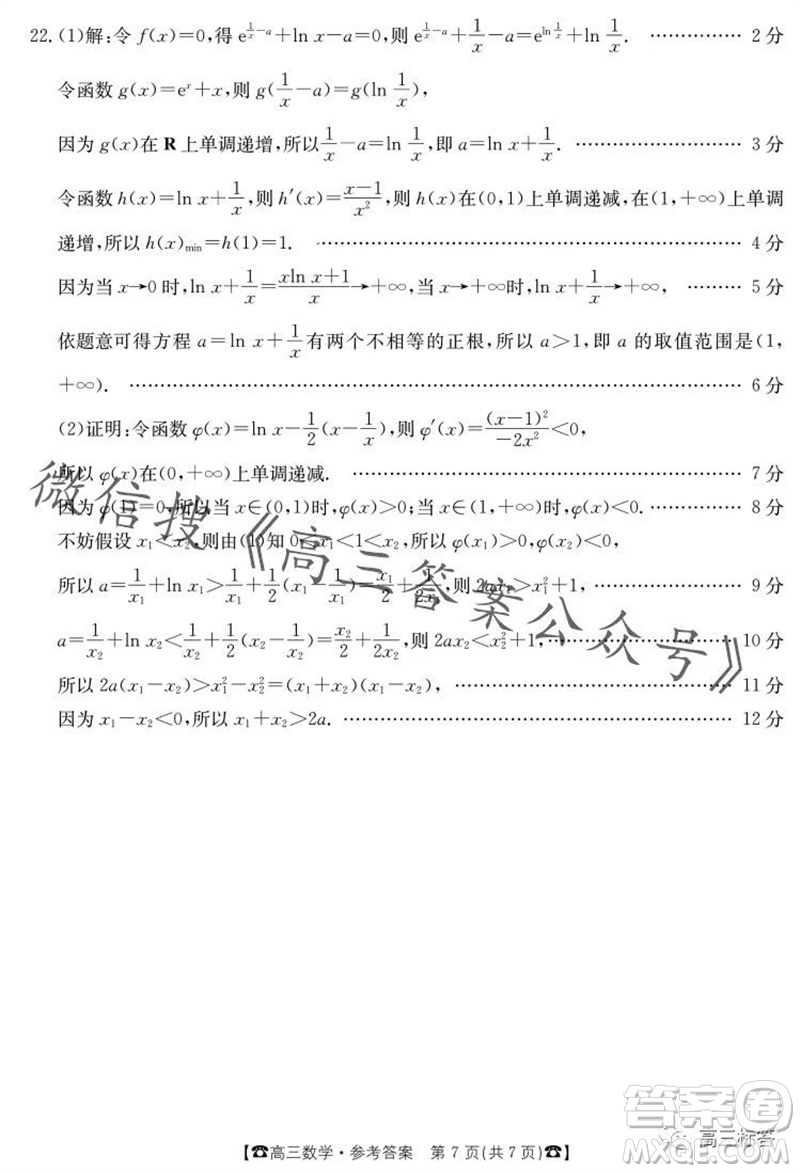 22.(1)解:令 f(x)=0,得 e^{\frac{1}{x}-a}+ln x-a=0,则 e^{\frac{1}{x}-a}+\frac{1}{x}-a=e^{ln\frac{1}{x}}+ln\frac{1}{x}. …………… 2 分
令函数 g(x)=e^x+x,则 g(\frac{1}{x}-a)=g(ln\frac{1}{x}),
因为 g(x)在 R 上单调递增,所以\frac{1}{x}-a=ln\frac{1}{x},即 a=ln x+\frac{1}{x}. ………………………… 3 分
令函数 h(x)=ln x+\frac{1}{x},则 h′(x)=\frac{x-1}{x^2},则 h(x)在(0,1)上单调递减,在(1,+∞)上单调
递增,所以 h(x)_{min}=h(1)=1. ………………………………………………………………… 4 分
因为当 x→0 时,ln x+\frac{1}{x}=\frac{xln x+1}{x}→+∞,当 x→+∞时,ln x+\frac{1}{x}→+∞, ……… 5 分
依题意可得方程 a=ln x+\frac{1}{x}有两个不相等的正根,所以 a>1,即 a 的取值范围是(1,
+∞). ………………………………………………………………………………………………… 6 分
(2)证明:令函数 φ(x)=ln x-\frac{1}{2}(x-\frac{1}{x}),则 φ′(x)=\frac{(x-1)^2}{-2x^2}<0,
所以 φ(x)在(0,+∞)上单调递减. …………………………………………………………… 7 分
因为 φ(1)=0,所以当 x∈(0,1)时,φ(x)>0;当 x∈(1,+∞)时,φ(x)<0. …………… 8 分
不妨假设 x_1<x_2,则由(1)知 0<x_1<1<x_2,所以 φ(x_1)>0,φ(x_2)<0,
所以 a=\frac{1}{x_1}+ln x_1>\frac{1}{x_1}+\frac{1}{2}(x_1-\frac{1}{x_1})=\frac{x_1}{2}+\frac{1}{2x_1},则 2ax_1>x_1^2+1, …………………… 9 分
a=\frac{1}{x_2}+ln x_2<\frac{1}{x_2}+\frac{1}{2}(x_2-\frac{1}{x_2})=\frac{x_2}{2}+\frac{1}{2x_2},则 2ax_2<x_2^2+1, …………………… 10 分
所以 2a(x_1-x_2)>x_1^2-x_2^2=(x_1+x_2)(x_1-x_2), ………………………………………… 11 分
因为 x_1-x_2<0,所以 x_1+x_2>2a. …………………………………………………………… 12 分
微信搜《高三答案公众号》
答案卷
高三标答
MXQE.COM
【☎高三数学·参考答案 第 7 页(共 7 页)☎】